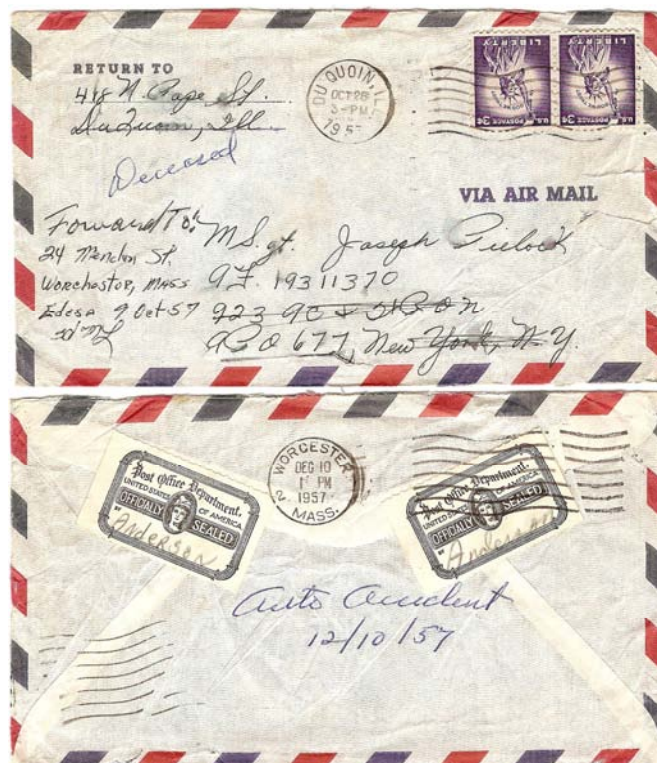 RETURN TO
418 N. Page St.
DuQuoin, Ill
Deceased
DU QUOIN, ILL
OCT 28
3-PM
195
LIBERTY
U.S. POSTAGE 3¢
LIBERTY
U.S. POSTAGE 3¢
VIA AIR MAIL
Forward To:
24 Mendon St,
Worchester, Mass
9 Oct 57
M Sgt. Joseph
AF. 19311370
923
APO 677, New York, N.Y.
WORCESTER
DEC 10
PM
2 1957
MASS.
Post Office Department.
UNITED STATES OF AMERICA
OFFICIALLY SEALED
BY Anderson
Post Office Department.
UNITED STATES OF AMERICA
OFFICIALLY SEALED
BY Anderson
Auto Accident
12/10/57